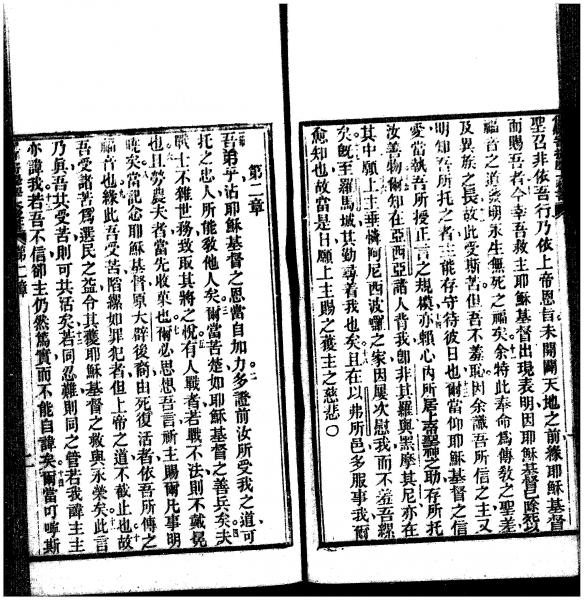 聖召非依吾行乃依上帝恩旨未開闢天地之前緣耶穌基督
而賜吾者今幸吾救主耶穌基督出現表明因耶穌基督已除死以
福音之道發明永生無死之福矣余特此奉命爲傳敎之聖差
及異族之長故此受斯苦但吾不羞恥因余識吾所信之主又
明知吾所托之者主能存守待彼日也爾當仰耶穌基督之信
愛當執吾所授正言之規模亦賴心內所居聖神之助存所托
汝善物爾知在亞西亞諸人背我卽非其羅與黑摩其尼亦在
其中願上主垂憐阿尼西波羅之家因屢次慰我而不羞吾縲
矣旣至羅馬城甚勤尋着我也矣且在以弗所邑多服事我爾
愈知也故當是日願上主賜之獲主之慈悲〇
第二章
吾弟乎沾耶穌基督之恩當自加力多證前汝所受我之道可
托之忠人所能敎他人矣爾當苦楚如耶穌基督之善兵矣夫
戰士不雜世務致取其將之悅有人戰者若戰不法則不戴冕
也且勞農夫者當先收菓也爾必思想吾言祈主賜爾凡事明
矣當記念耶穌基督原大辟後裔由死復活者依吾所傳之
福音也緣此吾受苦陷縲如罪犯者但上帝之道不截止也故
吾受諸苦爲選民之益令其獲耶穌基督之救與永榮矣此言
乃眞吾共受苦則可共活矣若同忍難則同之管若我諱主主
亦諱我若吾不信卻主仍然篤實而不能自諱矣爾當叮嚀斯
第二章